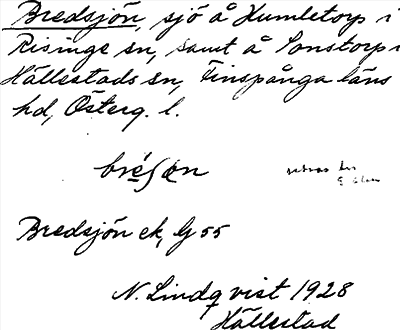 Bredsjön, sjö å Humletorp i
Risinge sn, samt å Sonstorp i
Hällestads sn, Finspånga läns
hd, Österg. l.
bréʃøn
Bredsjön ek, G 55
N. Lindqvist 1928
Hällestad